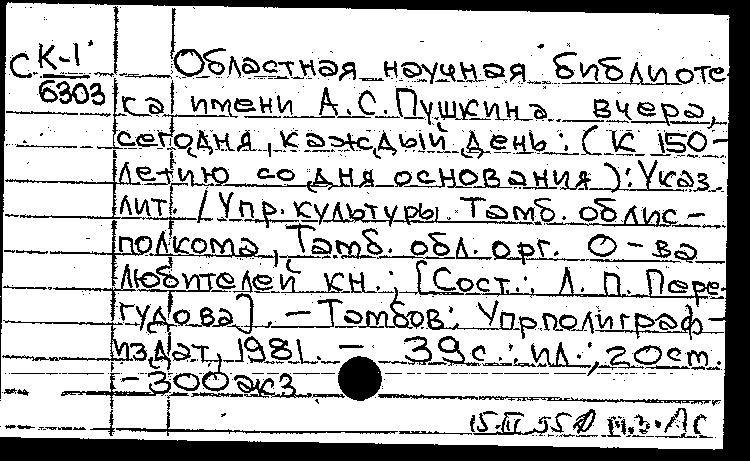 С К-1 Областная научная библиоте
6303 ка имени А.С.Пушкина вчера,
сегодня, каждый день: (К 150-
летию со дня основания): Указ.
лит. / Упр. культуры Тамб. облис-
полкома, Тамб. обл. орг. О-ва
любителей кн.; [Сост.: Л. П. Пере-
гудова]. – Тамбов: Упрполиграф-
издат, 1981. – 39с.: ил.; 20ст.
– 300экз